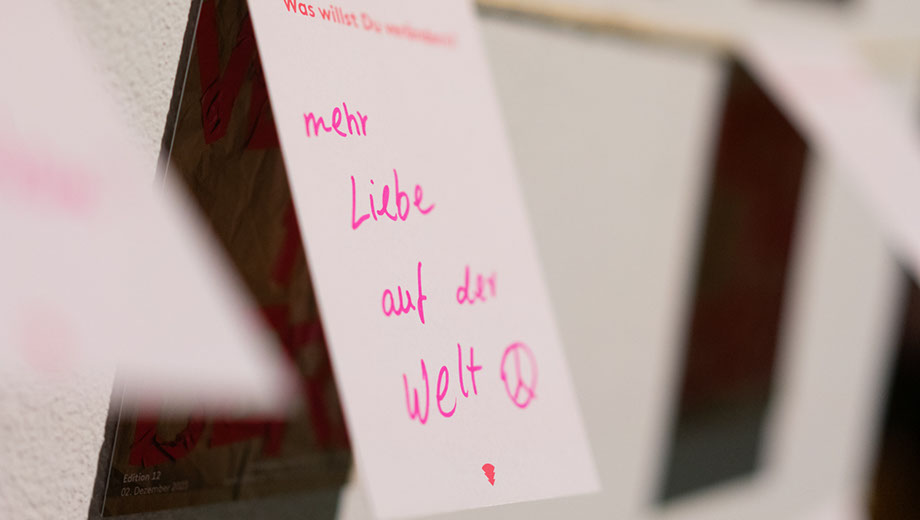 Was willst Du verändern?
mehr
Liebe
auf der
Welt
Edition 12
02. Dezember